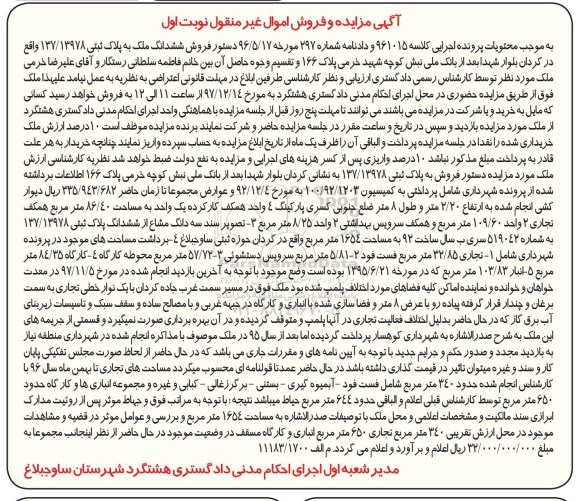 آگهی مزایده و فروش اموال غیر منقول نوبت اول
به موجب محتویات پرونده اجرایی کلاسه ۹۶۱۰۱۵ و دادنامه شماره ۲۹۷ مورخه ۹۶/۵/۱۷ دستور فروش ششدانگ ملک به پلاک ثبتی ۱۳۷/۱۳۹۷۸ واقع
در کردان بلوار شهدا بعد از بانک ملی نبش کوچه شهید خرمی پلاک ۱۶۶ و تقسیم وجوه حاصل آن بین خانم فاطمه سلطانی رستگار و آقای علیرضا خرمی
ملک مورد نظر توسط کارشناس رسمی دادگستری ارزیابی و نظر کارشناسی طرفین ابلاغ در مهلت قانونی اعتراضی به نظریه به عمل نیامد علیهذا ملک
فوق از طریق مزایده حضوری در محل اجرای احکام مدنی دادگستری هشتگرد به مورخ ۹۷/۱۲/۱۴ از ساعت ۱۱ الی ۱۲ به فروش خواهد رسید کسانی
که مایل به خرید و یا شرکت در مزایده می باشند می توانند تا مهلت پنج روز قبل از جلسه مزایده با هماهنگی واحد اجرای احکام مدنی دادگستری هشتگرد
از ملک مورد مزایده بازدید و سپس در تاریخ و ساعت مقرر در جلسه مزایده حاضر و شرکت نمایند برنده مزایده موظف است ۱۰درصد ارزش ملک
خریداری شده را نقدا در جلسه مزایده پرداخت و الباقی آن را ظرف یک ماه از تاریخ ابلاغ مزایده به حساب سپرده واریز نمایند چنانچه خریدار به هر علت
قادر به پرداخت مبلغ مذکور نباشد ۱۰درصد واریزی پس از کسر هزینه های اجرایی و مزایده به نفع دولت ضبط خواهد شد نظریه کارشناسی ارزش
ملک مورد مزایده دستور فروش به پلاک ثبتی ۱۳۷/۱۳۹۷۸ به نشانی کردان بلوار شهدا بعد از بانک ملی نبش کوچه خرمی پلاک ۱۶۶ اطلاعات برداشته
شده از پرونده شهرداری شامل پرداختی به کمیسیون ۹۲/۱۲۰۳-۱۰ به مورخ ۹۲/۱۲/۴ و عوارض مجموعا تا زمان حاضر ۳۳۵/۹۴۳/۶۸۲ ریال دیوار
کشی انجام شده به ارتفاع ۲/۲۰ متر و طول ۸ متر ضلع جنوبی کسری پارکینگ ۴ واحد همکف کارکرده یک واحد به مساحت ۸۶/۴۰ متر مربع همکف
تجاری ۲ واحد ۱۰۹/۶۰ متر مربع و همکف سرویس بهداشتی ۲ واحد ۸/۲۵ متر مربع ۳-تصویر سند سه دانگ مشاع از ششدانگ پلاک ثبتی ۱۳۷/۱۳۹۷۸
به شماره ۵۱۹۰۴۲ سری ب سال ساخت ۹۲ به مساحت ۱۶۵۴ متر مربع واقع در کردان حوزه ثبتی ساوجبلاغ ۴-برداشت مساحت های موجود در پرونده
شهرداری شامل ۱-تجاری ۳۲/۸۵ متر مربع فست فود ۲-۵/۸۱ متر مربع سرویس دستشوئی ۳-۵۷/۷۲ متر مربع محوطه کارگاه ۴-کارگاه ۸۴/۳۵ متر
مربع ۵-انبار ۱۰۳/۸۳ متر مربع که در مورخه ۱۳۹۵/۶/۲۱ بوده است وضع موجود با توجه به آخرین بازدید انجام شده در مورخ ۹۲/۱۱/۵ در معدت
خواهان و خوانده و نماینده اماکن کلیه فضاهای مورد اختلاف پلمپ شده بود ملک فوق در مسیر سمت غرب جاده کردان با یک نوار خطی تجاری به سمت
برغان و چندار قرار گرفته پیاده رو با عرض ۸ متر و فضا سازی شده با انباری و کارگاه در جبهه غربی و با مصالح ساده و سقف سبک و تاسیسات زیربنای
آب برق گاز که در حال حاضر بدلیل اختلاف فعالیت تجاری در آنها پلمپ و متوقف گردیده و در آن بهره برداری صورت نمیگیرد و قسمتی از جریمه های
این ملک به شرح صدرالاشاره به شهرداری کوهسار پرداخت گردیده اما بعد از سال ۹۵ در ملک موصوف با مذاکره انجام شده در شهرداری منطقه نیاز
به بازدید مجدد و صدور حکم و جرایم جدید با توجه به آیین نامه های و مقررات جاری می باشد که در حال حاضر از لحاظ صورت مجلس تفکیکی پایان
کار و سند و غیره میتوان تاثیر در قیمت گذاری داشته باشد در حال حاضر عمدتا قولنامه ای محسوب میگردد مساحت های تجاری تا بهمن ماه سال ۹۶ با
کارشناس انجام شده حدود ۳۴۰ متر مربع شامل فست فود - آبمیوه گیری - بستنی - برگر زغالی - کبابی و غیره و مجموعه انباری ها و کار گاه حدود
۶۵۰ متر مربع توسط کارشناس قبلی اعلام و الباقی حدود ۶۴۴ متر مربع حیاط میباشد نتیجه : با توجه به مراتب فوق و حیاط موثر پس از روئیت مدارک
ابرازی سند مالکیت و مشخصات اعلامی و محل ملک با توصیفات صدرالاشاره به مساحت ۱۶۵۴ متر مربع و بررسی و عوامل موثر در قضیه و مشاهدات
موجود در محل ارزش تقریبی ۳۴۰ متر مربع تجاری ۶۵۰ متر مربع انباری و کارگاه مسقف در وضعیت موجود در حال حاضر از نظر اینجانب مجموعا به
مبلغ ۳۲/۰۰۰/۰۰۰/۰۰۰ ریال اعلام و برآورد و اعلام می گردد. م الف ۱۱۱۸۳/۱۷۰۰
مدیر شعبه اول اجرای احکام مدنی دادگستری هشتگرد شهرستان ساوجبلاغ